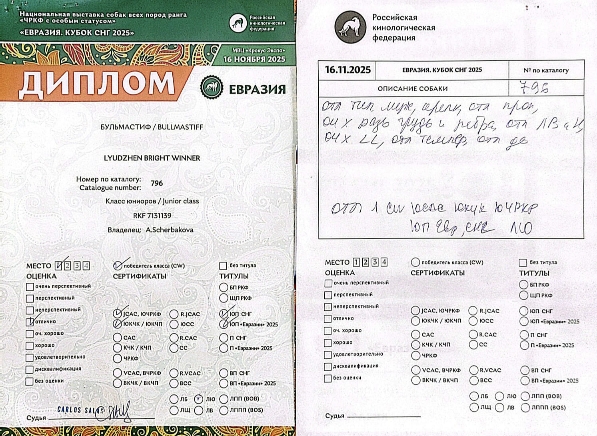 Национальная выставка собак всех пород ранга
«ЧРКФ с особым статусом»
«ЕВРАЗИЯ. КУБОК СНГ 2025»
Российская
кинологическая
федерация
МВЦ «Крокус Экспо»
16 НОЯБРЯ 2025
ДИПЛОМ
ЕВРАЗИЯ
БУЛЬМАСТИФ / BULLMASTIFF
LYUDZHEN BRIGHT WINNER
Номер по каталогу:
Catalogue number: 796
Класс юниоров / Junior class
RKF 7131139
Владелец: A.Scherbakova
МЕСТО 1 2 3 4
победитель класса (CW)
без титулы
ОЦЕНКА
СЕРТИФИКАТЫ
ТИТУЛЫ
очень перспективный
перспективный
неперспективный
отлично
оч. хорошо
хорошо
удовлетворительно
дисквалификация
без оценки
JCAC, ЮЧРКФ
R.JCAC
ЮКЧК / ЮКЧП
ЮСС
CAC
R.CAC
КЧК / КЧП
СС
ЧРКФ
VCAC, ВЧРКФ
R.VCAC
ВКЧК / ВКЧП
ВСС
БП РКФ
ЩП РКФ
ЮП СНГ
ЮП «Евразии» 2025
П СНГ
П «Евразии» 2025
ВП СНГ
ВП «Евразии» 2025
ЛБ
ЛЮ
ЛПП (BOB)
ЛЩ
ЛВ
ЛПП (BOS)
Судья
CARLOS SALAS
Российская
кинологическая
федерация
16.11.2025
ЕВРАЗИЯ. КУБОК СНГ 2025
№ по каталогу
ОПИСАНИЕ СОБАКИ
796
отл тип
оч х
грудь и ребра, отл
оч х
отл темпер, отл дв
отл 1 CW
ЮЧРКФ
ЮП Евр, СНГ ЛЮ
МЕСТО 1 2 3 4
победитель класса (CW)
без титулы
ОЦЕНКА
СЕРТИФИКАТЫ
ТИТУЛЫ
очень перспективный
перспективный
неперспективный
отлично
оч. хорошо
хорошо
удовлетворительно
дисквалификация
без оценки
JCAC, ЮЧРКФ
R.JCAC
ЮКЧК / ЮКЧП
ЮСС
CAC
R.CAC
КЧК / КЧП
СС
ЧРКФ
VCAC, ВЧРКФ
R.VCAC
ВКЧК / ВКЧП
ВСС
БП РКФ
ЩП РКФ
ЮП СНГ
ЮП «Евразии» 2025
П СНГ
П «Евразии» 2025
ВП СНГ
ВП «Евразии» 2025
ЛБ
ЛЮ
ЛПП (BOB)
ЛЩ
ЛВ
ЛПП (BOS)
Судья